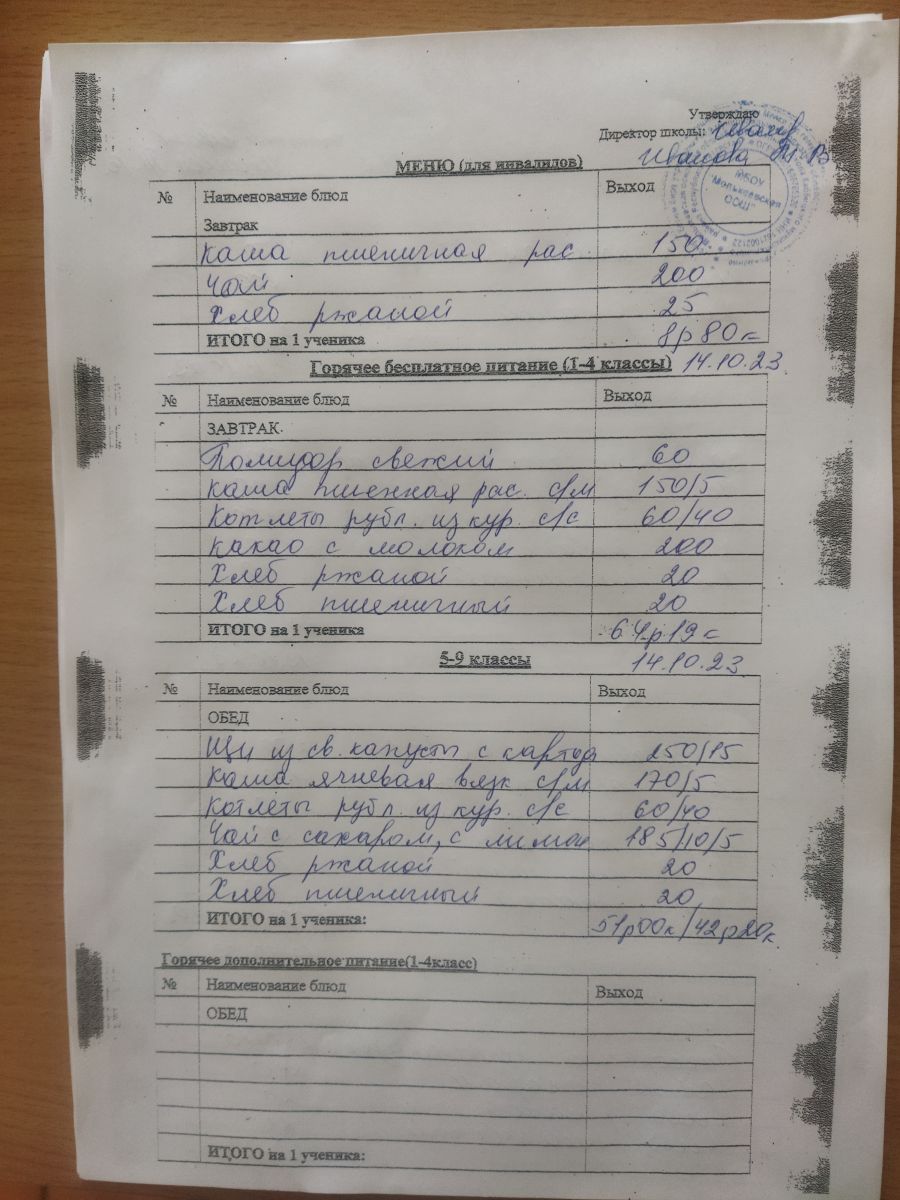 Утверждаю
Директор школы:
Иванова М. В
МЕНЮ (для инвалидов)
№ Наименование блюд Выход
Завтрак
Каша пшеничная рас 150
Чай 200
Хлеб ржаной 25
ИТОГО на 1 ученика 8р 80к
Горячее бесплатное питание (1-4 классы) 14.10.23
№ Наименование блюд Выход
ЗАВТРАК
Помидор свежий 60
Каша пшенная рас. с/м 150/5
Котлеты рубл. из кур. с/с 60/40
Какао с молоком 200
Хлеб ржаной 20
Хлеб пшеничный 20
ИТОГО на 1 ученика 64р 19к
5-9 классы 14.10.23
№ Наименование блюд Выход
ОБЕД
Щи из св. капусты с картоф 250/15
Каша ячневая вязк с/м 170/5
Котлеты рубл. из кур. с/с 60/40
Чай с сахаром, с лимон 185/10/5
Хлеб ржаной 20
Хлеб пшеничный 20
ИТОГО на 1 ученика: 51р00к/42р20к
Горячее дополнительное питание(1-4класс)
№ Наименование блюд Выход
ОБЕД
ИТОГО на 1 ученика:
МБОУ